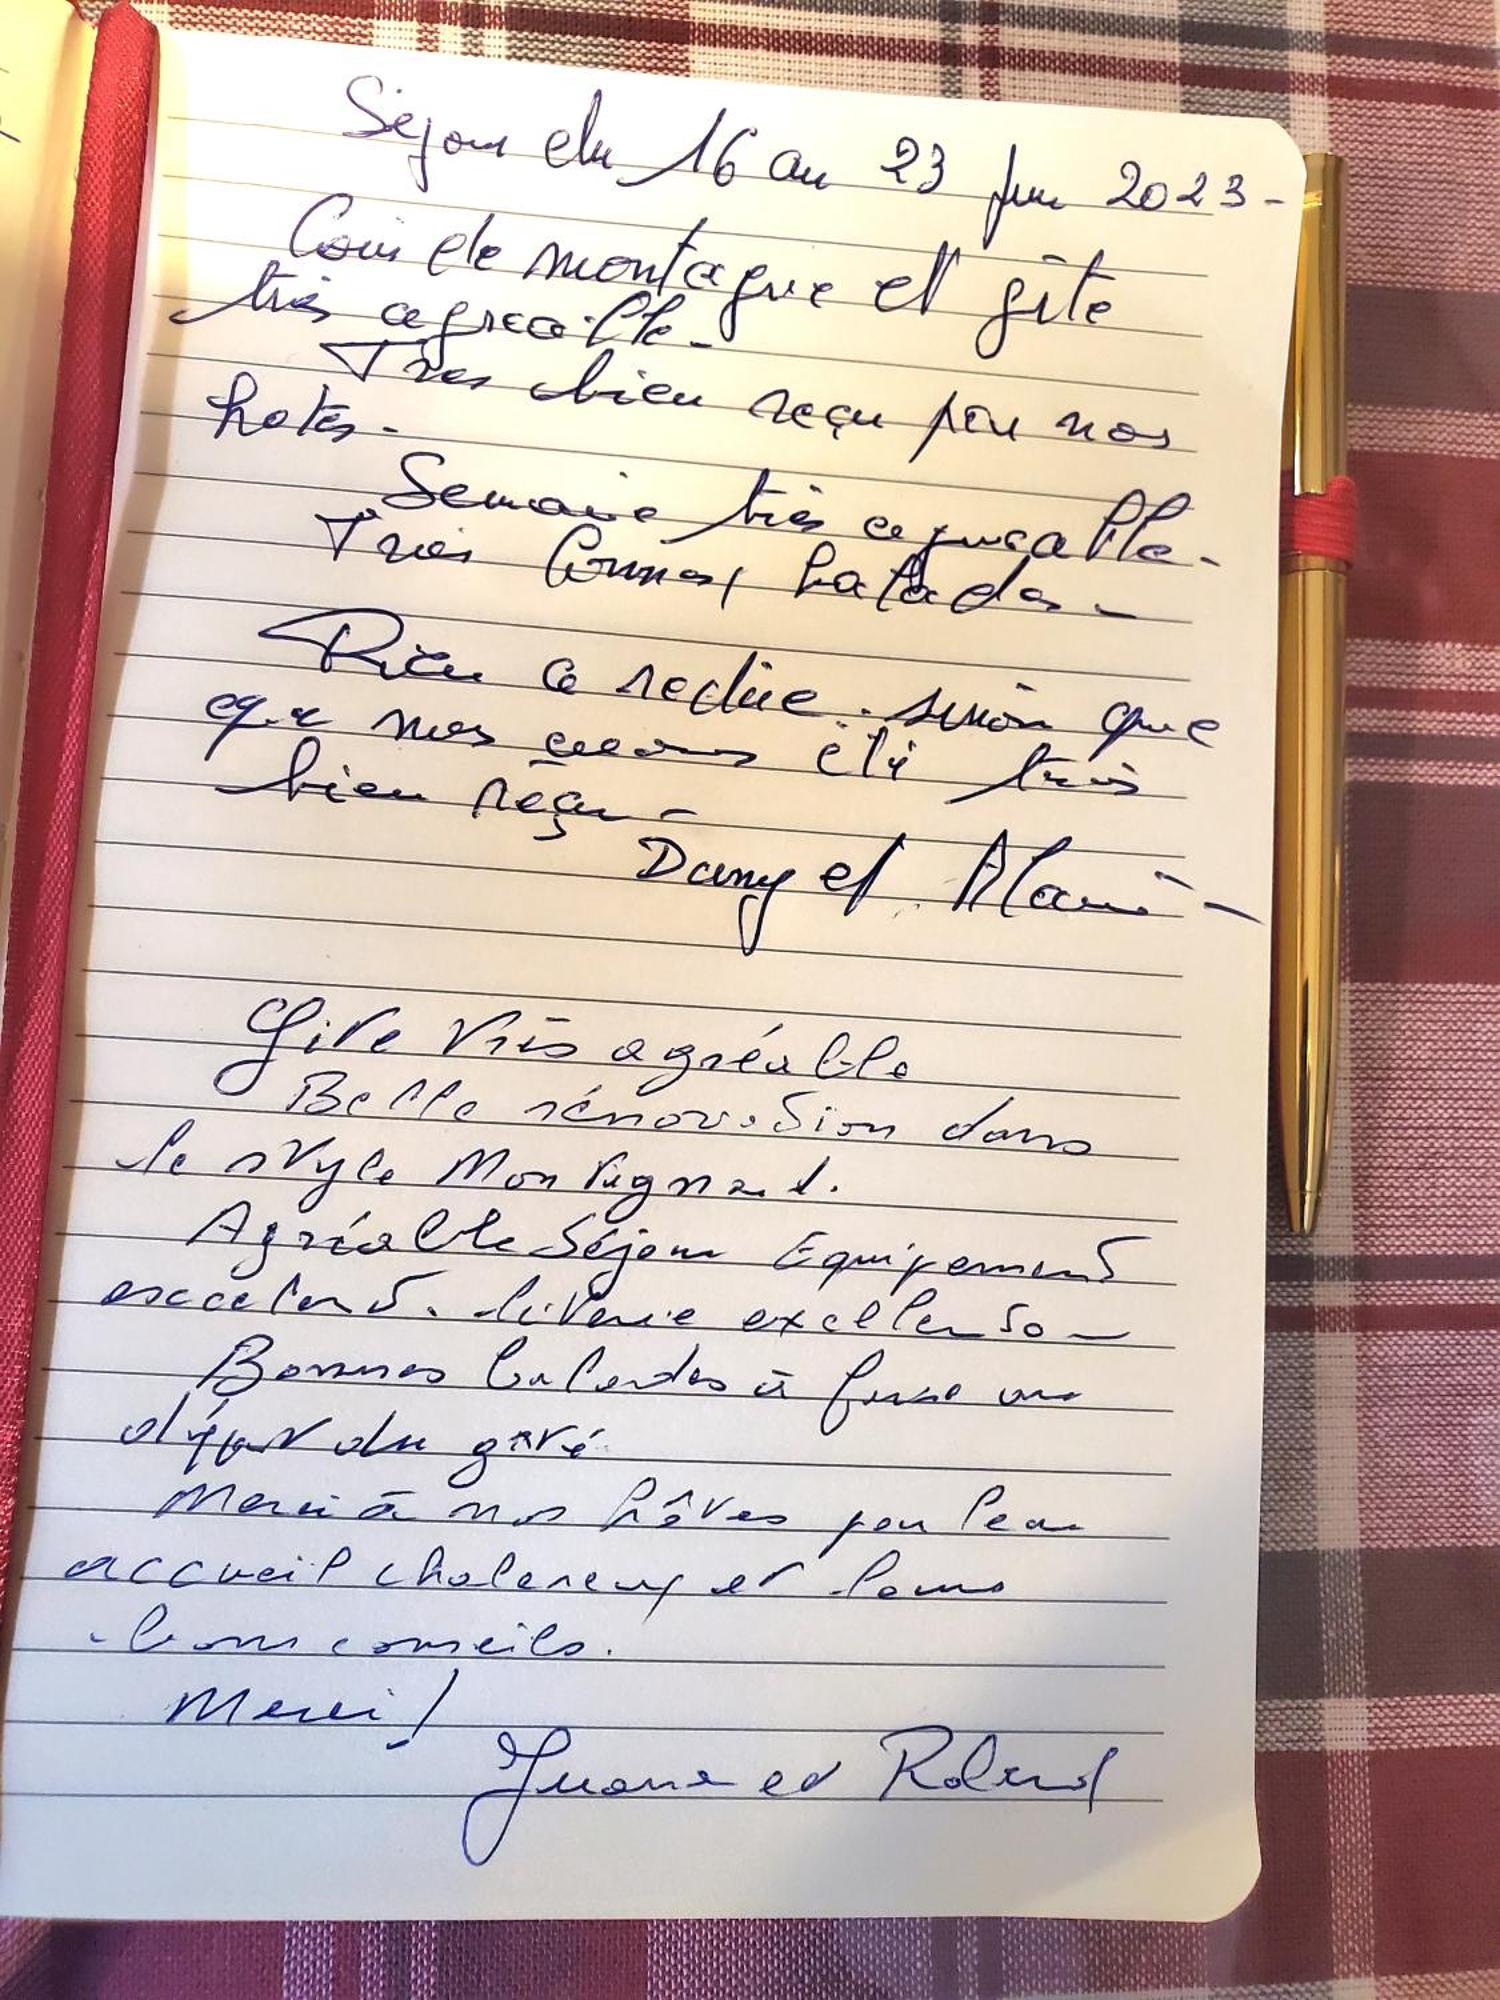 Séjour du 16 au 23 Juin 2023-
Coin de montagne et gîte
très agréable-
Très bien reçu par nos
hotes-
Semaine très agréable-
Très bonnes balades-
Rien a redire. sinon que
que nous avons été très
bien reçu-
Dany et Alain-
Gite très agréable
Belle rénovation dans
le style Montagnard.
Agréable Séjour Equipement
excelent. literie excellente-
Bonnes balades à faire au
départ du gîte
Merci à nos hôtes pour leur
accueil chalereux et leurs
bons conseils.
Merci!
et Roland